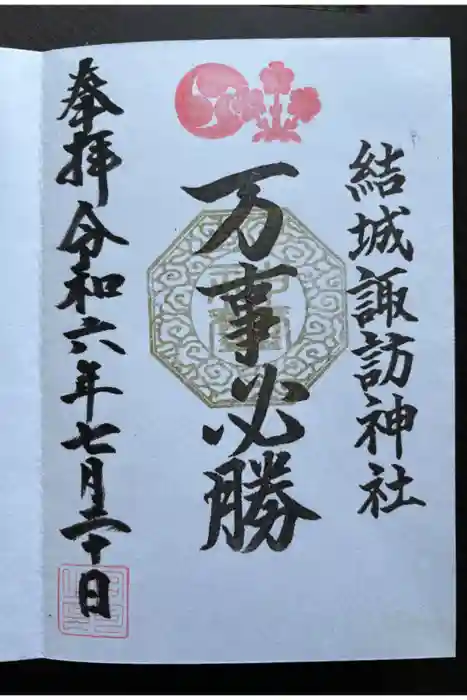 結城諏訪神社
万事必勝
奉拝 令和六年七月二十日